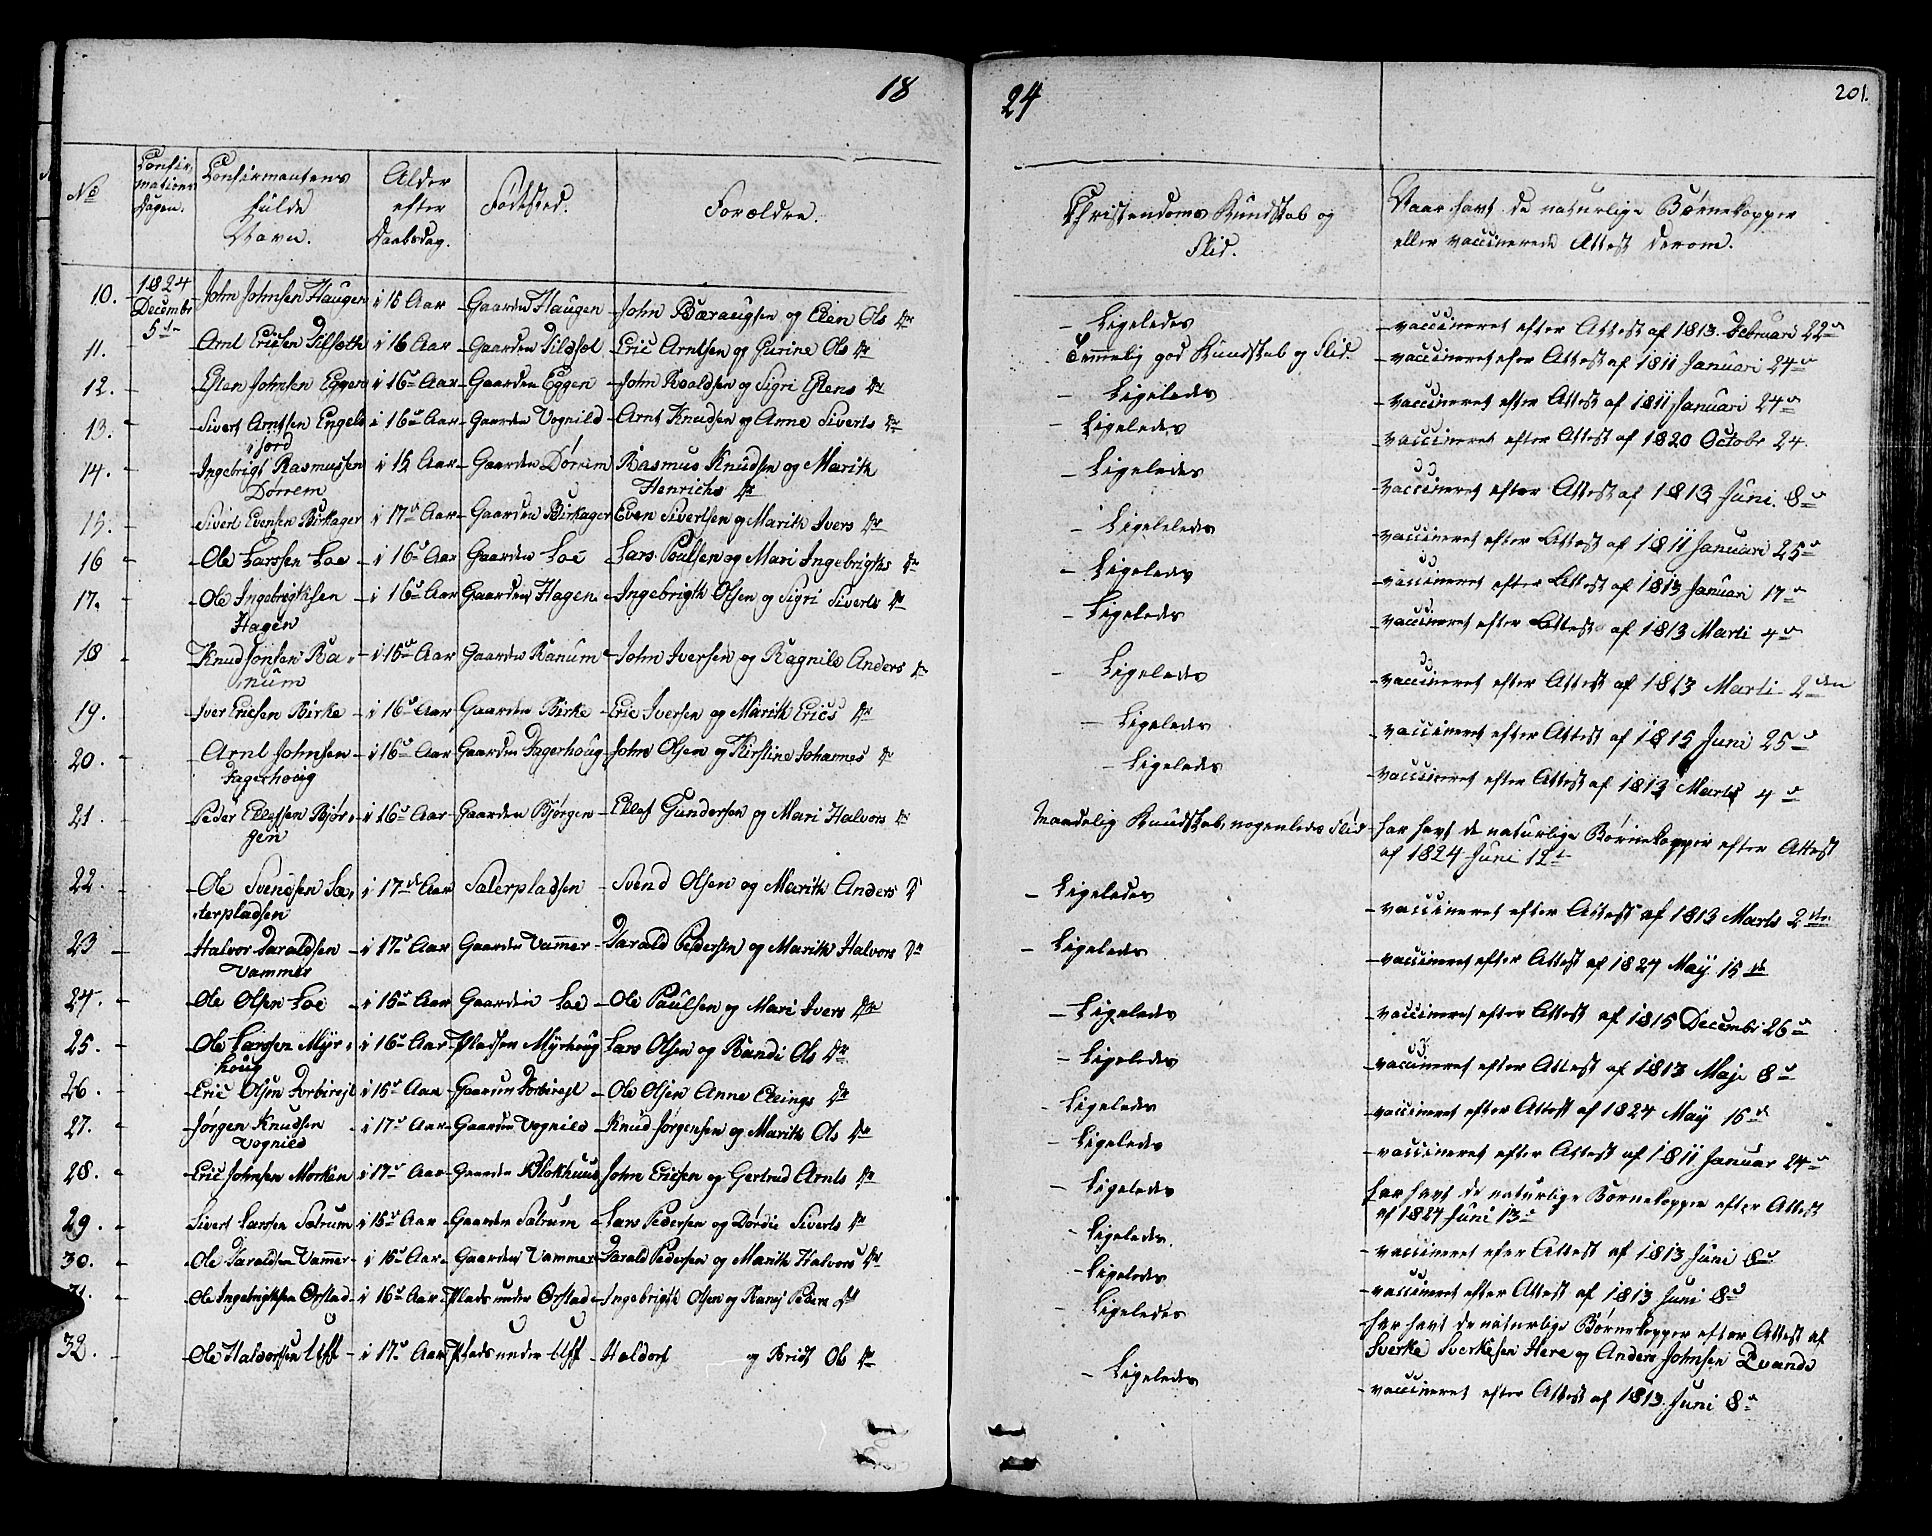 18
24
201.
No
Confir-
mations
Dagen.
Confirmantens
fulde
Navn.
Alder
efter
Daabsdag.
Födested.
Forældre.
Christendoms Kundskab og
Flid.
Naar havt de naturlige Børnekopper
eller vaccinerede Attest derom.
1824
Decembr
5te
10. John Johnsen Haugen i 15 Aar Gaarden Haugen John Bæraugsen og Elen Ols Dr
- Ligeledes
- vaccineret efter Attest af 1813 Februari 22de
11. Arnt Ericsen i 16 Aar Gaarden Eric Arntsen og Gurine Ols Dr
Temmelig god Kundskab og Flid.
- vaccineret efter Attest af 1811 Januari 24de
12. - Esten Johnsen Eggen i 16de Aar Gaarden Eggen John Roaldsen og Sigri Estens Dr
- Ligeledes
- vaccineret efter Attest af 1811 Januari 24de
13. - Sivert Arntsen Engels i 16de Aar Gaarden Vognild Arnt Knudsen og Anne Siverts Dr
jord
- Ligeledes
- vaccineret efter Attest af 1820 Octobr 24.
14. - Ingebrigt Rasmussen i 15 Aar Gaarden Dørrem Rasmus Knudsen og Marith
Dørrem Henrichs Dr
- Ligeledes
vaccineret efter Attest af 1813 Juni 8de
15. - Sivert Evensen Birkager i 17de Aar Gaarden Birkager Even Sivertsen og Marith Ivers Dr
- Ligeledes
- vaccineret efter Attest af 1811 Januari 25de
16 - Ole Larssen Loe i 16de Aar Gaarden Loe Lars Poulsen og Mari Ingebrigts Dr
- Ligeledes
- vaccineret efter Attest af 1813 Januari 17de
17. - Ole Ingebrigtsen i 16de Aar Gaarden Hagen Ingebrigth Olsen og Sigri Siverts Dr
Hagen
- Ligeledes
- vaccineret efter Attest af 1813 Marti 4de
18 - Knud Jonsen Ra- i 15de Aar Gaarden Ranum John Iversen og Ragnild Anders Dr
num
- Ligeledes
- vaccineret efter Attest af 1813 Marti 2den
19. Iver Ericsen Birke i 16de Aar Gaarden Birke Eric Iversen og Marith Erics Dr
- Ligeledes
- vaccineret efter Attest af 1815 Juni 25de
20. - Arnt Johnsen i 16de Aar Gaarden Fagerhoug John Olsen og Kirstine Johannes Dr
Fagerhoug
- Ligeledes
- vaccineret efter Attest af 1813 Marts 4de
21. Peder Ellefsen Bjør- i 16de Aar Gaarden Bjørgen Ellef Gundersen og Mari Halvors Dr
gen
Maadelig Kundskab, nogenledes Flid
- har havt de naturlige Børnekopper efter Attest
af 1824 Juni 12te
22. - Ole Svendsen Sæ- i 17de Aar Sæterpladsen Svend Olsen og Marith Anders D
terpladsen
- Ligeledes
- vaccineret efter Attest af 1813 Marts 2den
23 - Halvor Haraldsen i 17de Aar Gaarden Vammer Harald Pedersen og Marith Halvors Dr
Vammer
- Ligeledes
- vaccineret efter Attest af 1824 May 15de
24. - Ole Olsen Loe i 15de Aar Gaarden Loe Ole Paulsen og Mari Ivers Dr
- Ligeledes
- vaccineret efter Attest af 1815 Decembr 26de
25. - Ole Larssen Myr- i 16de Aar Pladsen Myrhoug Lars Olsen og Randi Ols Dr
houg
- Ligeledes
- vaccineret efter Attest af 1813 Maji 8de
26. Eric Olsen i 15de Aar Gaarden Ole Olsen Anne Dr
- Ligeledes
- vaccineret efter Attest af 1824 May 15de
27. - Jørgen Knudsen i 17de Aar Gaarden Vognild Knud Jørgensen og Marith Ols Dr
Vognild
- Ligeledes
- vaccineret efter Attest af 1811 Januar 24de
28. - Eric Johnsen Morken i 17de Aar Gaarden Blokhuus John Ericsen og Gertrud Arnts Dr
- Ligeledes
har havt de naturlige Børnekopper efter Attest
af 1824 Juni 13de
29. - Sivert Larssen Sætrum i 15de Aar Gaarden Sætrum Lars Pedersen og Dordie Siverts Dr
- Ligeledes.
- vaccineret efter Attest af 1813 Juni 8de
30. - Ole Haraldsen Vammer i 15de Aar Gaarden Vammer Harald Pedersen og Marith Halvors Dr
- Ligeledes
- vaccineret efter Attest af 1813 Juni 8de
31. - Ole Ingebrigtsen Orstad i 16de Aar Plads under Orstad Ingebrigth Olsen og Peders Dr
- Ligeledes
har havt de naturlige Børnekopper efter Attest af
Sverke Sverkesen Here og Anders Johnsen
32. - Ole Haldorsen i 17de Aar Plads under Haldor og Bridt Ols Dr
- Ligeledes
- vaccineret efter Attest af 1813 Juni 8de